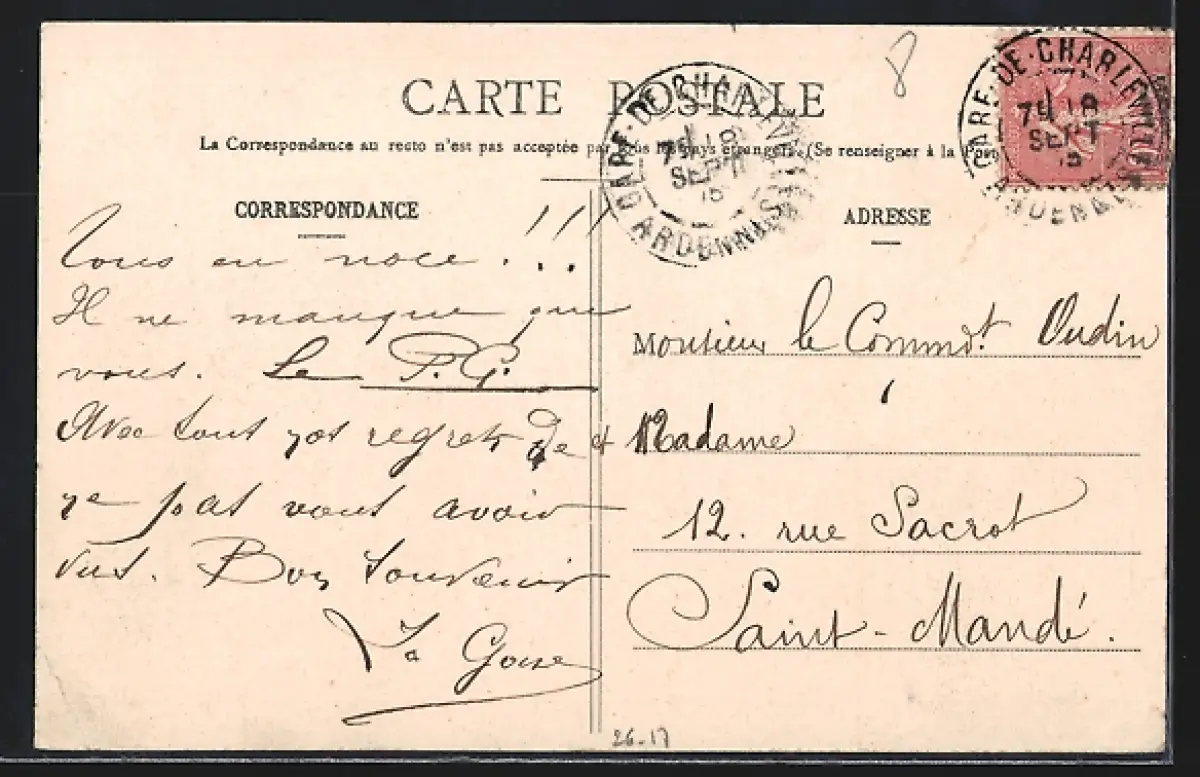 CARTE POSTALE
La Correspondance au recto n'est pas acceptée par tous les pays étrangers. (Se renseigner à la Poste
GARE-DE-CHARLEVILLE
SEPT
ARDENNES
GARE-DE-CHARLEVILLE
SEPT
ARDENNES
8
CORRESPONDANCE
Tous en noce !!!
Il ne manque que
vous. Le P.G.
Avec tout nos regrets de
ne pas vous avoir
vus. Bon souvenir
ADRESSE
Monsieur le Commdt. Oudin
et Madame
12. rue Sacrot
Saint-Mandé.
26-17